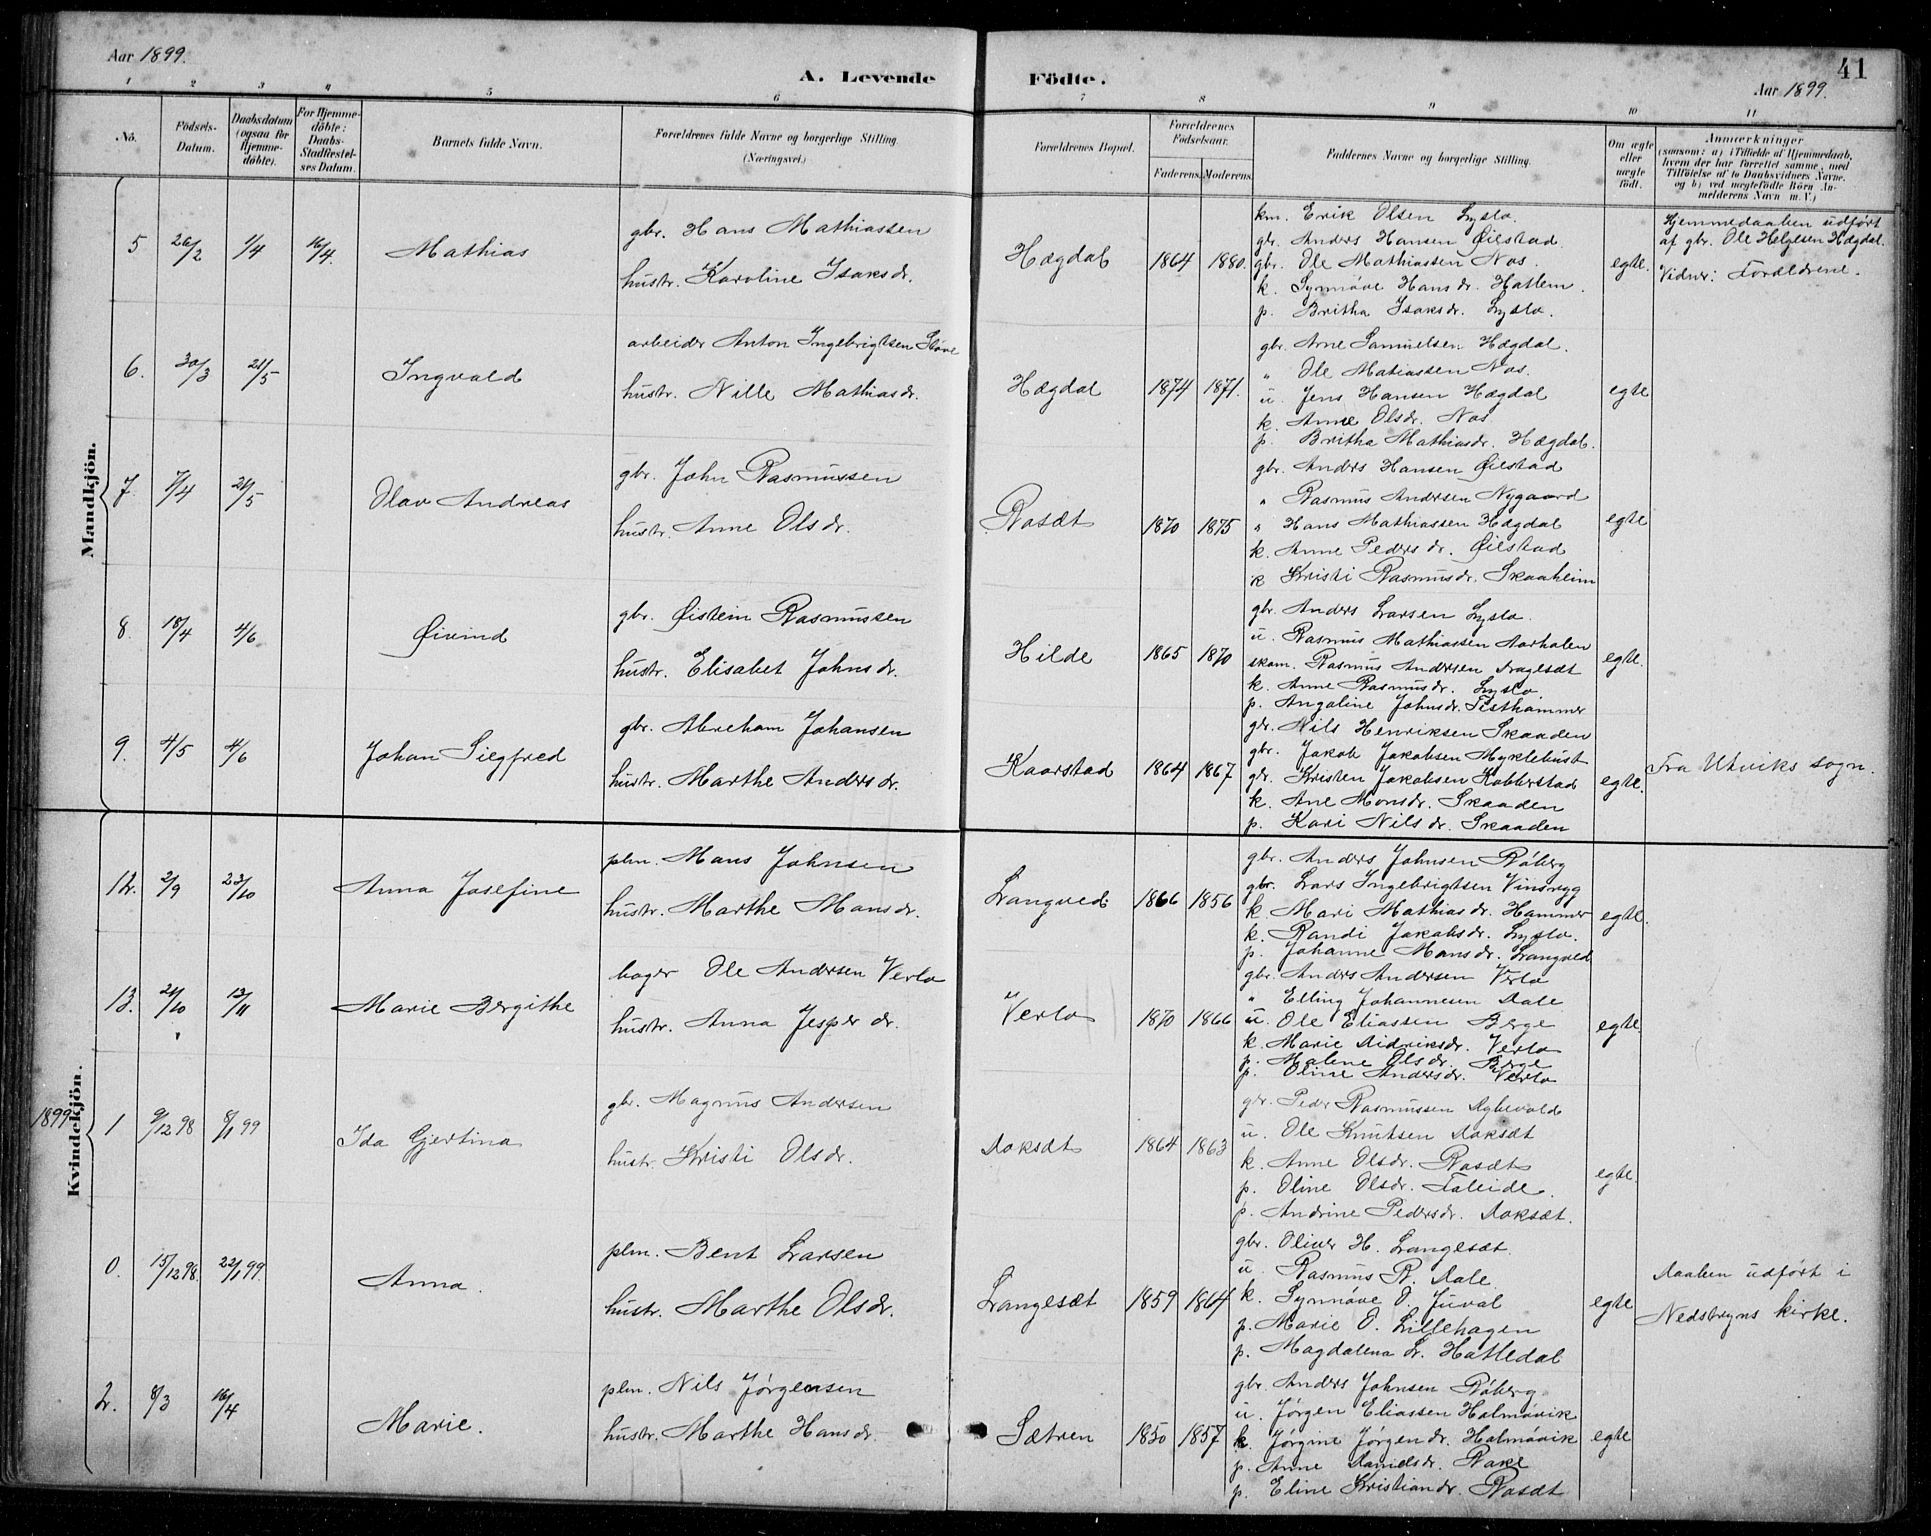 Aar 1899.
A. Levende Födte.
41
Aar 1899.
1 2 3 4 5 6 7 8 9 10 11
No. Födsels-Datum. Daabsdatum (ogsaa for Hjemme-döbte). For Hjemme-döbte: Daabs-Stadfæstel-ses Datum. Barnets fulde Navn. Forældrenes fulde Navne og borgerlige Stilling. (Næringsvei.) Forældrenes Bopæl. Forældrenes Födselsaar. Faderens. Moderens. Faddernes Navne og borgerlige Stilling. Om ægte eller uægte födt. Anmærkninger (saasom: a) i Tilfælde af Hjemmedaab, hvem der har forrettet samme, med Tilföielse af to Daabsvidners Navne, og b) ved uægtefödte Börn An-melderens Navn m. V.)
Mandkjön.
5 26/2 1/4 16/4. Mathias
gbr. Hans Mathiassen
hustr. Karoline Isaksdr.
Hægdal 1864 1880.
km. Erik Olsen Lyslo.
gbr. Anders Hansen Øilstad.
gbr. Ole Mathiassen Nos.
k. Synnøve Hansdr. Hatlem.
p. Britha Isaksdr. Lyslo.
egte.
Hjemmedaaben udført
af gbr. Ole Helgesen Hægdal.
Vidner: Forældrene.
6. 30/3 21/5 Ingvald
arbeider Anton Ingebrigtsen Støve
hustr. Nille Mathiasdr.
Hægdal 1874 1871.
gbr. Arne Samuelsen Hægdal.
" Ole Matiassen Nos.
u. Jens Hansen Hægdal
k. Anne Olsdr. Nos
p. Britha Mathiasdr. Hægdal.
egte
7 7/4 21/5 Olav Andreas
gbr. John Rasmussen
hustr. Anne Olsdr.
Rosæt 1870 1875
gbr. Anders Hansen Øilstad
" Rasmus Andersen Nygaard
" Hans Mathiassen Hægdal
k. Anne Pedersdr. Øilstad
k Kristi Rasmusdr. Skaaheim
egte
8. 18/4 4/6 Øivind
gbr. Øistein Rasmussen
hustr. Elisabet Johnsdr.
Hilde 1865 1870
gbr. Anders Larsen Lyslo.
u. Rasmus Mathiassen Aarholen
skom. Rasmus Andersen Dragesæt
k. Anne Rasmusdr. Lyslo.
p. Angaline Johnsdr. Festhammer
egte.
9. 4/5 4/6 Johan Siegfred
gbr. Abreham Johansen
hustr. Marthe Andersdr.
Kaarstad 1864 1867
gbr. Nils Henriksen Skaaden
gbr. Jakob Jakobsen Myklebust
gbr. Kristen Jakobsen Kobberstad
k. Ane Monsdr. Skaaden
p. Kari Nilsdr. Skaaden
egte.
Fra Utviks sogn.
Kvindekjön.
12. 2/9 23/10 Anna Josefine
plm. Mans Johnsen
hustr. Marthe Mansdr.
Langved 1866 1856
gbr. Anders Johnsen Røberg
gbr. Lars Ingebrigtsen Vinsryg
k. Mari Mathiasdr. Hammer
k. Randi Jakobsdr. Lyslo.
p. Johanne Mansdr. Langved
egte.
13. 21/10 12/11 Marie Bergithe
bager Ole Andersen Verlo
hustr. Anna Jesperdr.
Verlo 1870 1866
gbr. Anders Andersen Verlo
" Elling Johannesen Dale
u. Ole Eliassen Berge
k. Marie Didriksdr. Verlo
p. Malene Olsdr. Berge
p. Oline Andersdr. Verlo
egte.
1899
1 9/12 98 8/1 99 Ida Gjertina
gbr. Magnus Andersen
hustr. Kristi Olsdr.
Doksæt 1864 1863
gbr. Peder Rasmussen Dybevold
u. Ole Knutsen Doksæt
k. Anne Olsdr. Rosæt
p. Oline Olsdr. Faleide.
p. Andrine Pedersdr. Doksæt.
egte.
0. 15/12 98. 22/1 99. Anna.
plm. Bent Larsen
hustr. Marthe Olsdr.
Langesæt 1859 1864
gbr. Oliver H. Langesæt.
u. Rasmus R. Dale
k. Synnøve O. Juval
p. Marie O. Lillehagen
p. Magdalena L. Hatledal
egte
Daaben udført i
Nedstryns kirke.
2. 8/3 16/4 Marie.
plm. Nils Jørgensen
hustr. Marthe Hansdr.
Sætren 1850 1857
gbr. Anders Johnsen Røberg
u. Jørgen Eliassen Holmøvik
k. Jørgine Jørgendr. Holmøvik
p. Anne Danielsdr. Rake
p. Eline Kristiandr. Rosæt
egte